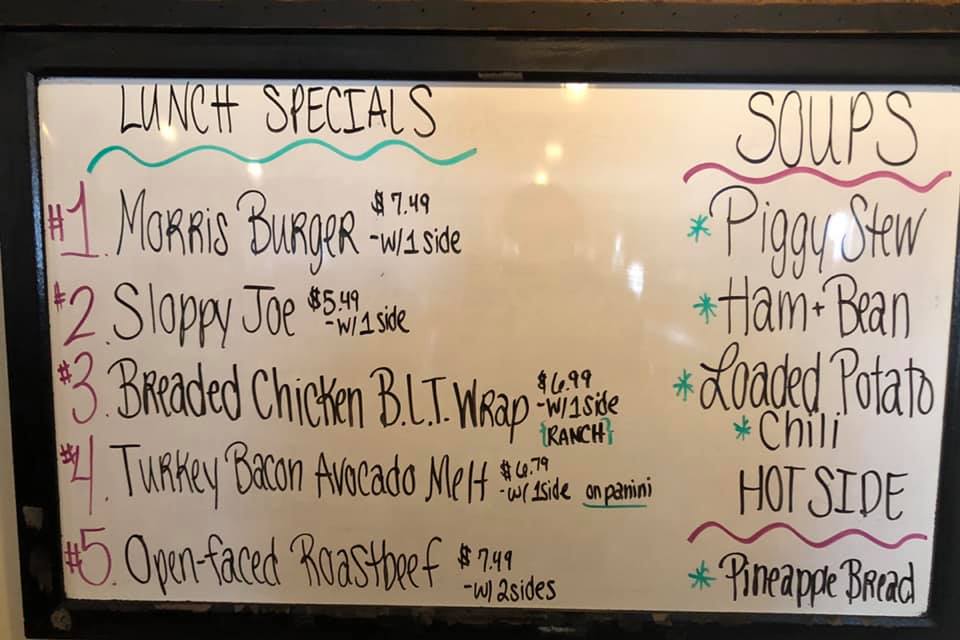 LUNCH SPECIALS
#1. Morris Burger $7.49
-w/1 side
#2. Sloppy Joe $5.49
-w/1 side
#3. Breaded Chicken B.L.T. Wrap $6.99
-w/1 side
{RANCH}
#4. Turkey Bacon Avocado Melt $6.79
-w/1 side on panini
#5. Open-faced Roastbeef $7.49
-w/2 sides
SOUPS
* Piggy Stew
* Ham + Bean
* Loaded Potato
* Chili
HOT SIDE
* Pineapple Bread